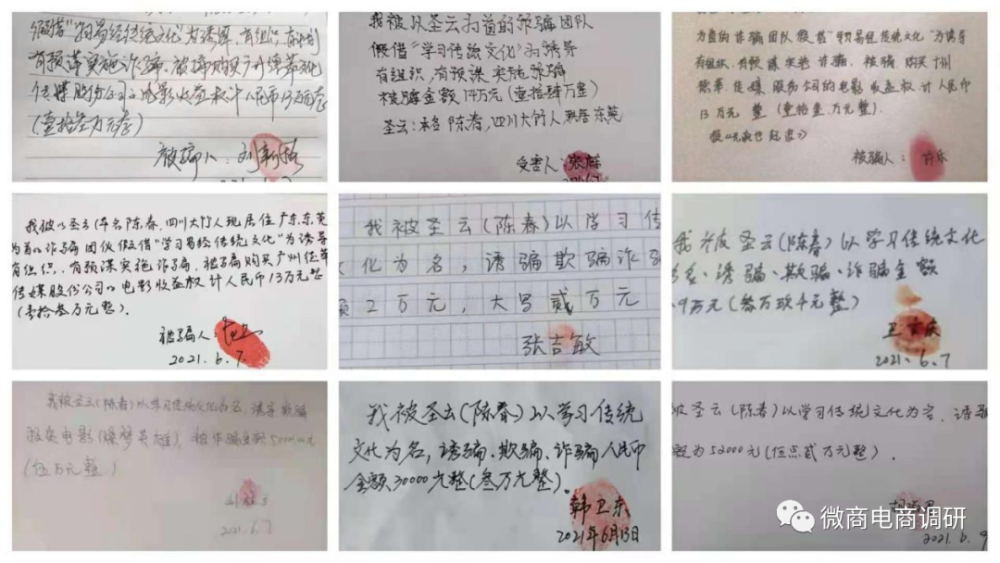 假借"习易经传统文化"为诱导,有组织,有计划
有预谋实施诈骗,被骗购买广州
传媒股份公司电影收益权计人民币13万圆整
(壹拾叁万元整)
被骗人:刘
2021.6.7
我被以圣云为首的诈骗团队
假借"学习传统文化"为诱导
有组织,有预谋实施诈骗
被骗金额14万元(壹拾肆万圆)
圣云:本名陈春,四川大竹人现居东莞
受害人:张
为首的诈骗团队假借"学习易经传统文化"为诱导
有组织,有预谋实施诈骗,被骗购买广州
传媒股份公司的电影收益权计人民币
13万元整(壹拾叁万元整).
被骗人:许乐
我被以圣云(本名陈春,四川大竹人现居住广东东莞
为首的诈骗团伙假借"学习易经传统文化"为诱导
有组织,有预谋实施诈骗,被骗购买广州
传媒股份公司电影收益权计人民币13万元整
(壹拾叁万元整).
被骗人
2021.6.7
我被圣云(陈春)以学习传
文化为名,诱骗欺骗诈骗
额2万元,大写贰万元
张吉敏
我被圣云(陈春)以学习传统文化
为名,诱骗、欺骗、诈骗金额
.9万元(叁万玖千元整)
卫
2021.6.7
我被圣云(陈春)以学习传统文化为名,诱导欺骗
(伍万元整)
2021.6.7
我被圣云(陈春)以学习传统
文化为名,诱骗、欺骗、诈骗人民币
金额30000元整(叁万元整)。
韩卫东
2021年6月13日
被圣云(陈春)以学习传统文化为名,诱骗
额为52000元(伍点贰万元整).
胡
2021.6.9
微商电商调研